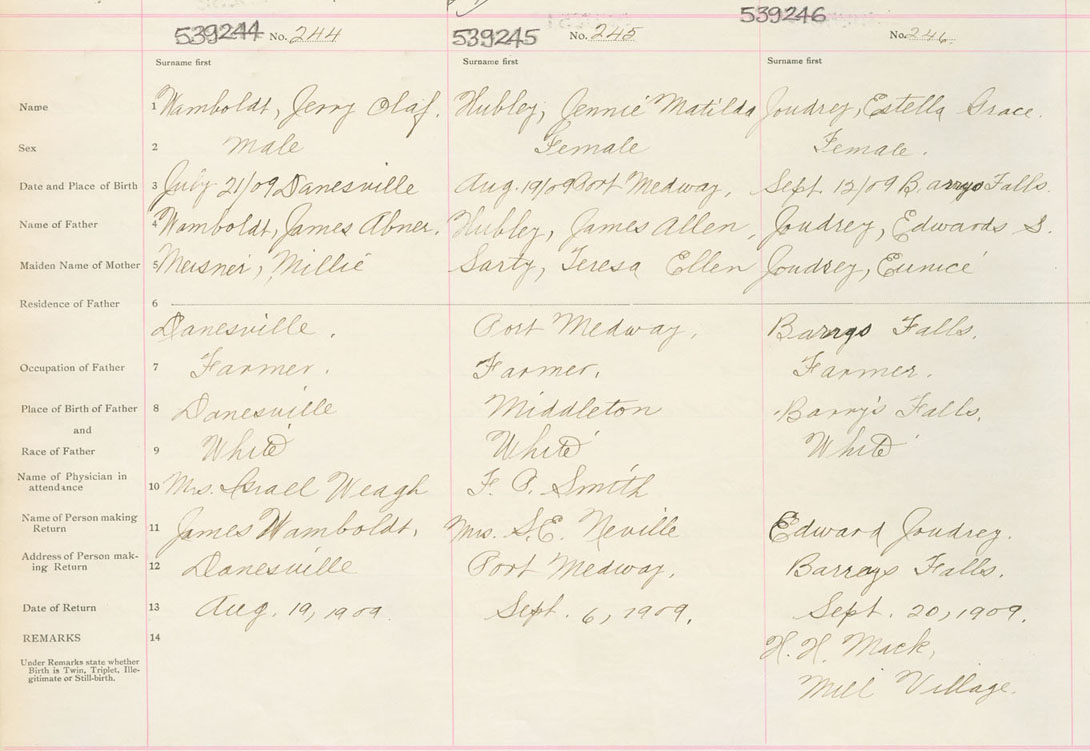 539244 No. 244 539245 No. 245 539246 No. 246
Surname first Surname first Surname first
Name 1 Wamboldt, Jerry Olaf. Hubley, Jennie Matilda Joudrey, Estella Grace.
Sex 2 Male Female Female.
Date and Place of Birth 3 July 21/09 Danesville Aug. 19/09 Port Medway, Sept. 12/09 Barrys Falls.
Name of Father 4 Wamboldt, James Abner. Hubley, James Allen, Joudrey, Edwards S.
Maiden Name of Mother 5 Meisner, Millie Sarty, Teresa Ellen Joudrey, Eunice
Residence of Father 6
Danesville. Port Medway. Barrys Falls.
Occupation of Father 7 Farmer. Farmer. Farmer.
Place of Birth of Father 8 Danesville Middleton Barry's Falls.
and
Race of Father 9 White White White
Name of Physician in
attendance 10 Mrs. Israel Weagh F. P. Smith
Name of Person making
Return 11 James Wamboldt, Mrs. S.E. Neville Edward Joudrey.
Address of Person mak-
ing Return 12 Danesville Port Medway. Barrys Falls.
Date of Return 13 Aug. 19, 1909. Sept. 6, 1909. Sept. 20, 1909.
REMARKS 14 H. H. Mack,
Under Remarks state whether
Birth is Twin, Triplet, Ille-
gitimate or Still-birth.
Mill Village.